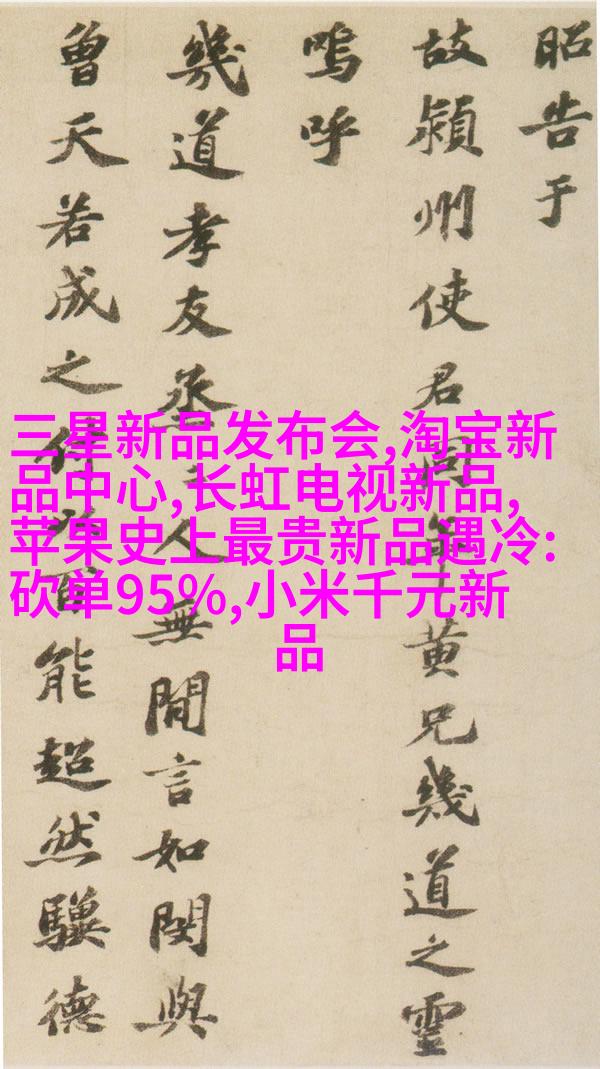 昭告于
故潁州使君同年黄兄幾道之靈
嗚呼
幾道孝友烝〻人無閒言如閔與
曾天若成之付以百能超然驥德
三星新品发布会,淘宝新
品中心,长虹电视新品,
苹果史上最贵新品遇冷:
砍单95%,小米千元新
品